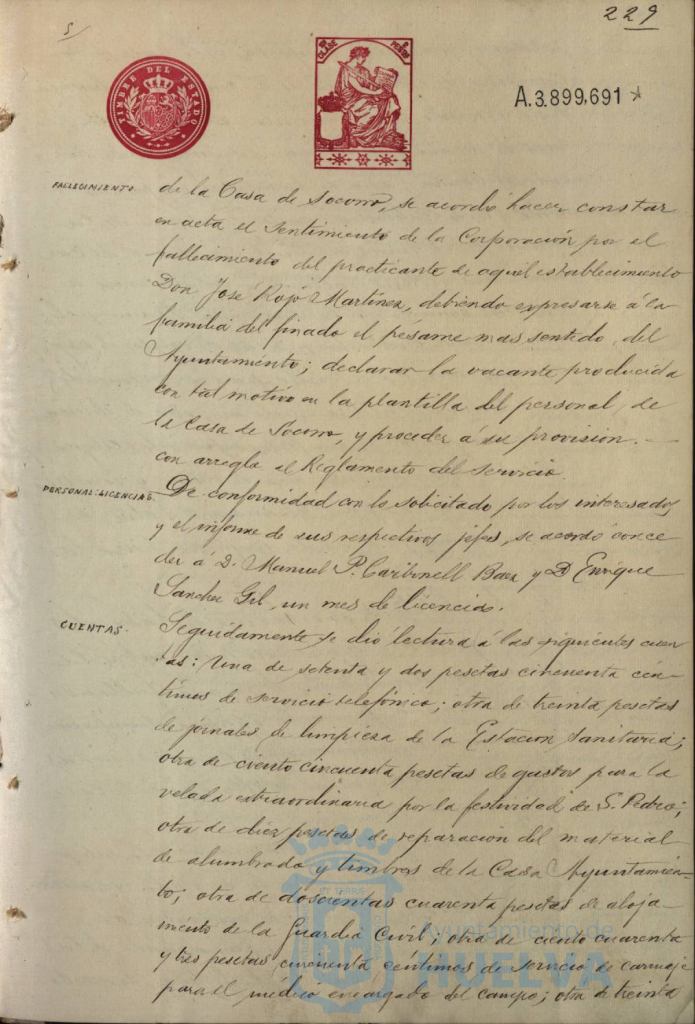 5
229
TIMBRE DEL ESTADO
CLASE
PESETAS
A.3.899,691 *
FALLECIMIENTO.
de la Casa de Socorro, se acordó hacer constar
en acta el sentimiento de la Corporación por el
fallecimiento del practicante de aquel establecimiento
Don José Rojo Martínez, debiendo expresarse á la
familia del finado el pesame mas sentido del
Ayuntamiento; declarar la vacante producida
con tal motivo en la plantilla del personal de
la Casa de Socorro, y proceder á su provisión.—
con arreglo al Reglamento del servicio.
PERSONAL: LICENCIAS.
De conformidad con lo solicitado por los interesados
y el informe de sus respectivos jefes, se acordó conce
der á D. Manuel P. Carbonell Baez y D Enrique
Sanchez Gil, un mes de licencia.
CUENTAS.
Seguidamente se dió lectura á las siguientes cuen
tas: Una de setenta y dos pesetas cincuenta cén-
timos de servicio telefónico; otra de treinta pesetas
de jornales de limpieza de la Estacion Sanitaria;
otra de ciento cincuenta pesetas de gastos para la
velada extraordinaria por la festividad de S. Pedro;
otra de diez pesetas de reparación del material
de alumbrado y timbres de la Casa Ayuntamien-
to; otra de doscientas cuarenta pesetas de aloja-
miento de la Guardia Civil; otra de ciento cuarenta
y tres pesetas cincuenta céntimos de servicio de carruaje
para el médico encargado del campo; otra de treinta
Ayuntamiento de
HUELVA